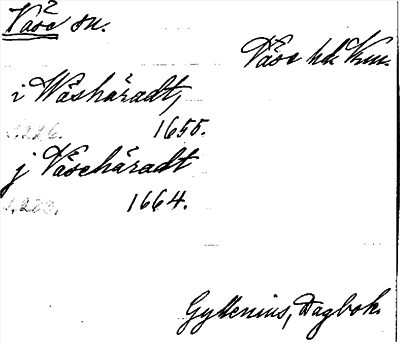 Väse sn.
Väse hd Vrm.
i Wäsháradt,
s. 226. 1655.
j Väseháradt
s. 223. 1664.
Gyllenius, Dagbok.